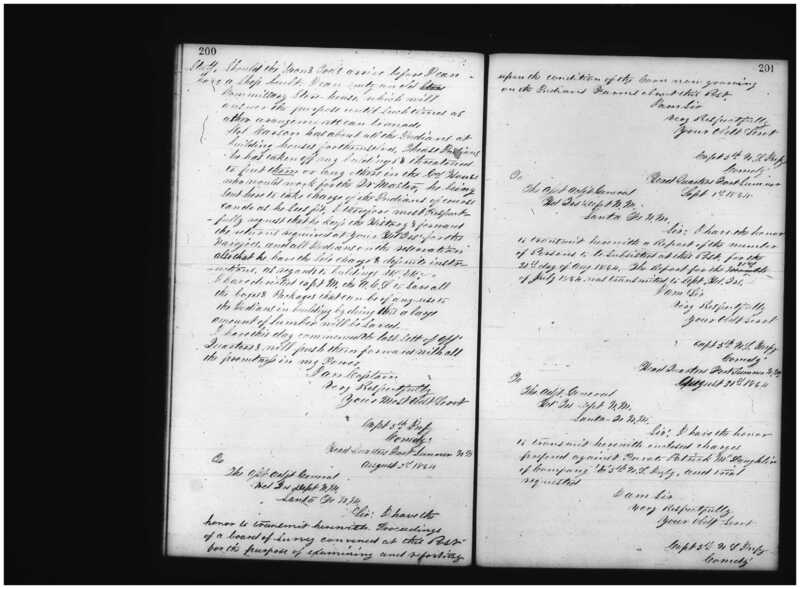 200
Should the Iron & Tools arrive before Dean
has a Shop built, Dean puts an old
Commissary Store house, which will
answer the purpose until such time as
other arrangements can be made
Kit Carson has about all the Indians at
building houses for themselves, these Indians
he has taken off my buildings & threatened
to put them or any others in the
who would work for the Qr Master, he being
sent here to take charge of the Indians of course
can do as he sees fit, I therefore most respect-
fully request that he
the returns required at your Hd Qrs for the
Navajoes and all Indians on the reservation
also that he have the sole charge & definite instr-
uctions, as regards buildings &c. &c.
I have directed Capt M the A.C.S to save all
the boxes & Packages that can be of any use to
the Indians in building by doing this a large
amount of lumber will be saved.
I have this day commenced the last sett of Off.
Quarters & will push them forward with all
the promptness in my Power.
I am Captain
Very Respectfully
Your Most Obt Servt
Capt 5th Infy
Comdg.
Head Quarters Fort Sumner N.M.
August 1864
To
The Asst Adjt General
Hd Qrs Dept N.M.
Santa Fe N.M.
Sir: I have the
honor to transmit herewith Proceedings
of a board of Survey convened at this Post
for the purpose of examining and reporting
201
upon the condition of the Corn now growing
on the Indians Farms about this Post.
I am Sir
Very Respectfully
Your Obt Servt
Capt 5th U.S. Infy
Comdg.
Head Quarters Fort Sumner
Sept 1st 1864
To
The Asst Adjt General
Hd Qrs Dept N.M.
Santa Fe N.M.
Sir: I have the honor
to transmit herewith a Report of the number
of Persons to be subsisted at this Post, for the
31st day of Aug 1864. The Report for the
of July 1864, was transmitted to Dept. Hd. Qrs.
I am Sir
Very Respectfully
Your Obt Servt
Capt 5th U.S. Infy
Comdg.
Head Quarters Fort Sumner N.M.
August 31st 1864
To
The Adjt. General
Hd Qrs Dept N.M.
Santa Fe N.M.
Sir: I have the honor
to transmit herewith enclosed charges
prefered against Private Patrick McLaughlin
of Company 5th U.S. Infy, and trial
requested
I am Sir
Very respectfully
Your Obt Servt
Capt 5th U.S. Infy
Comdg.